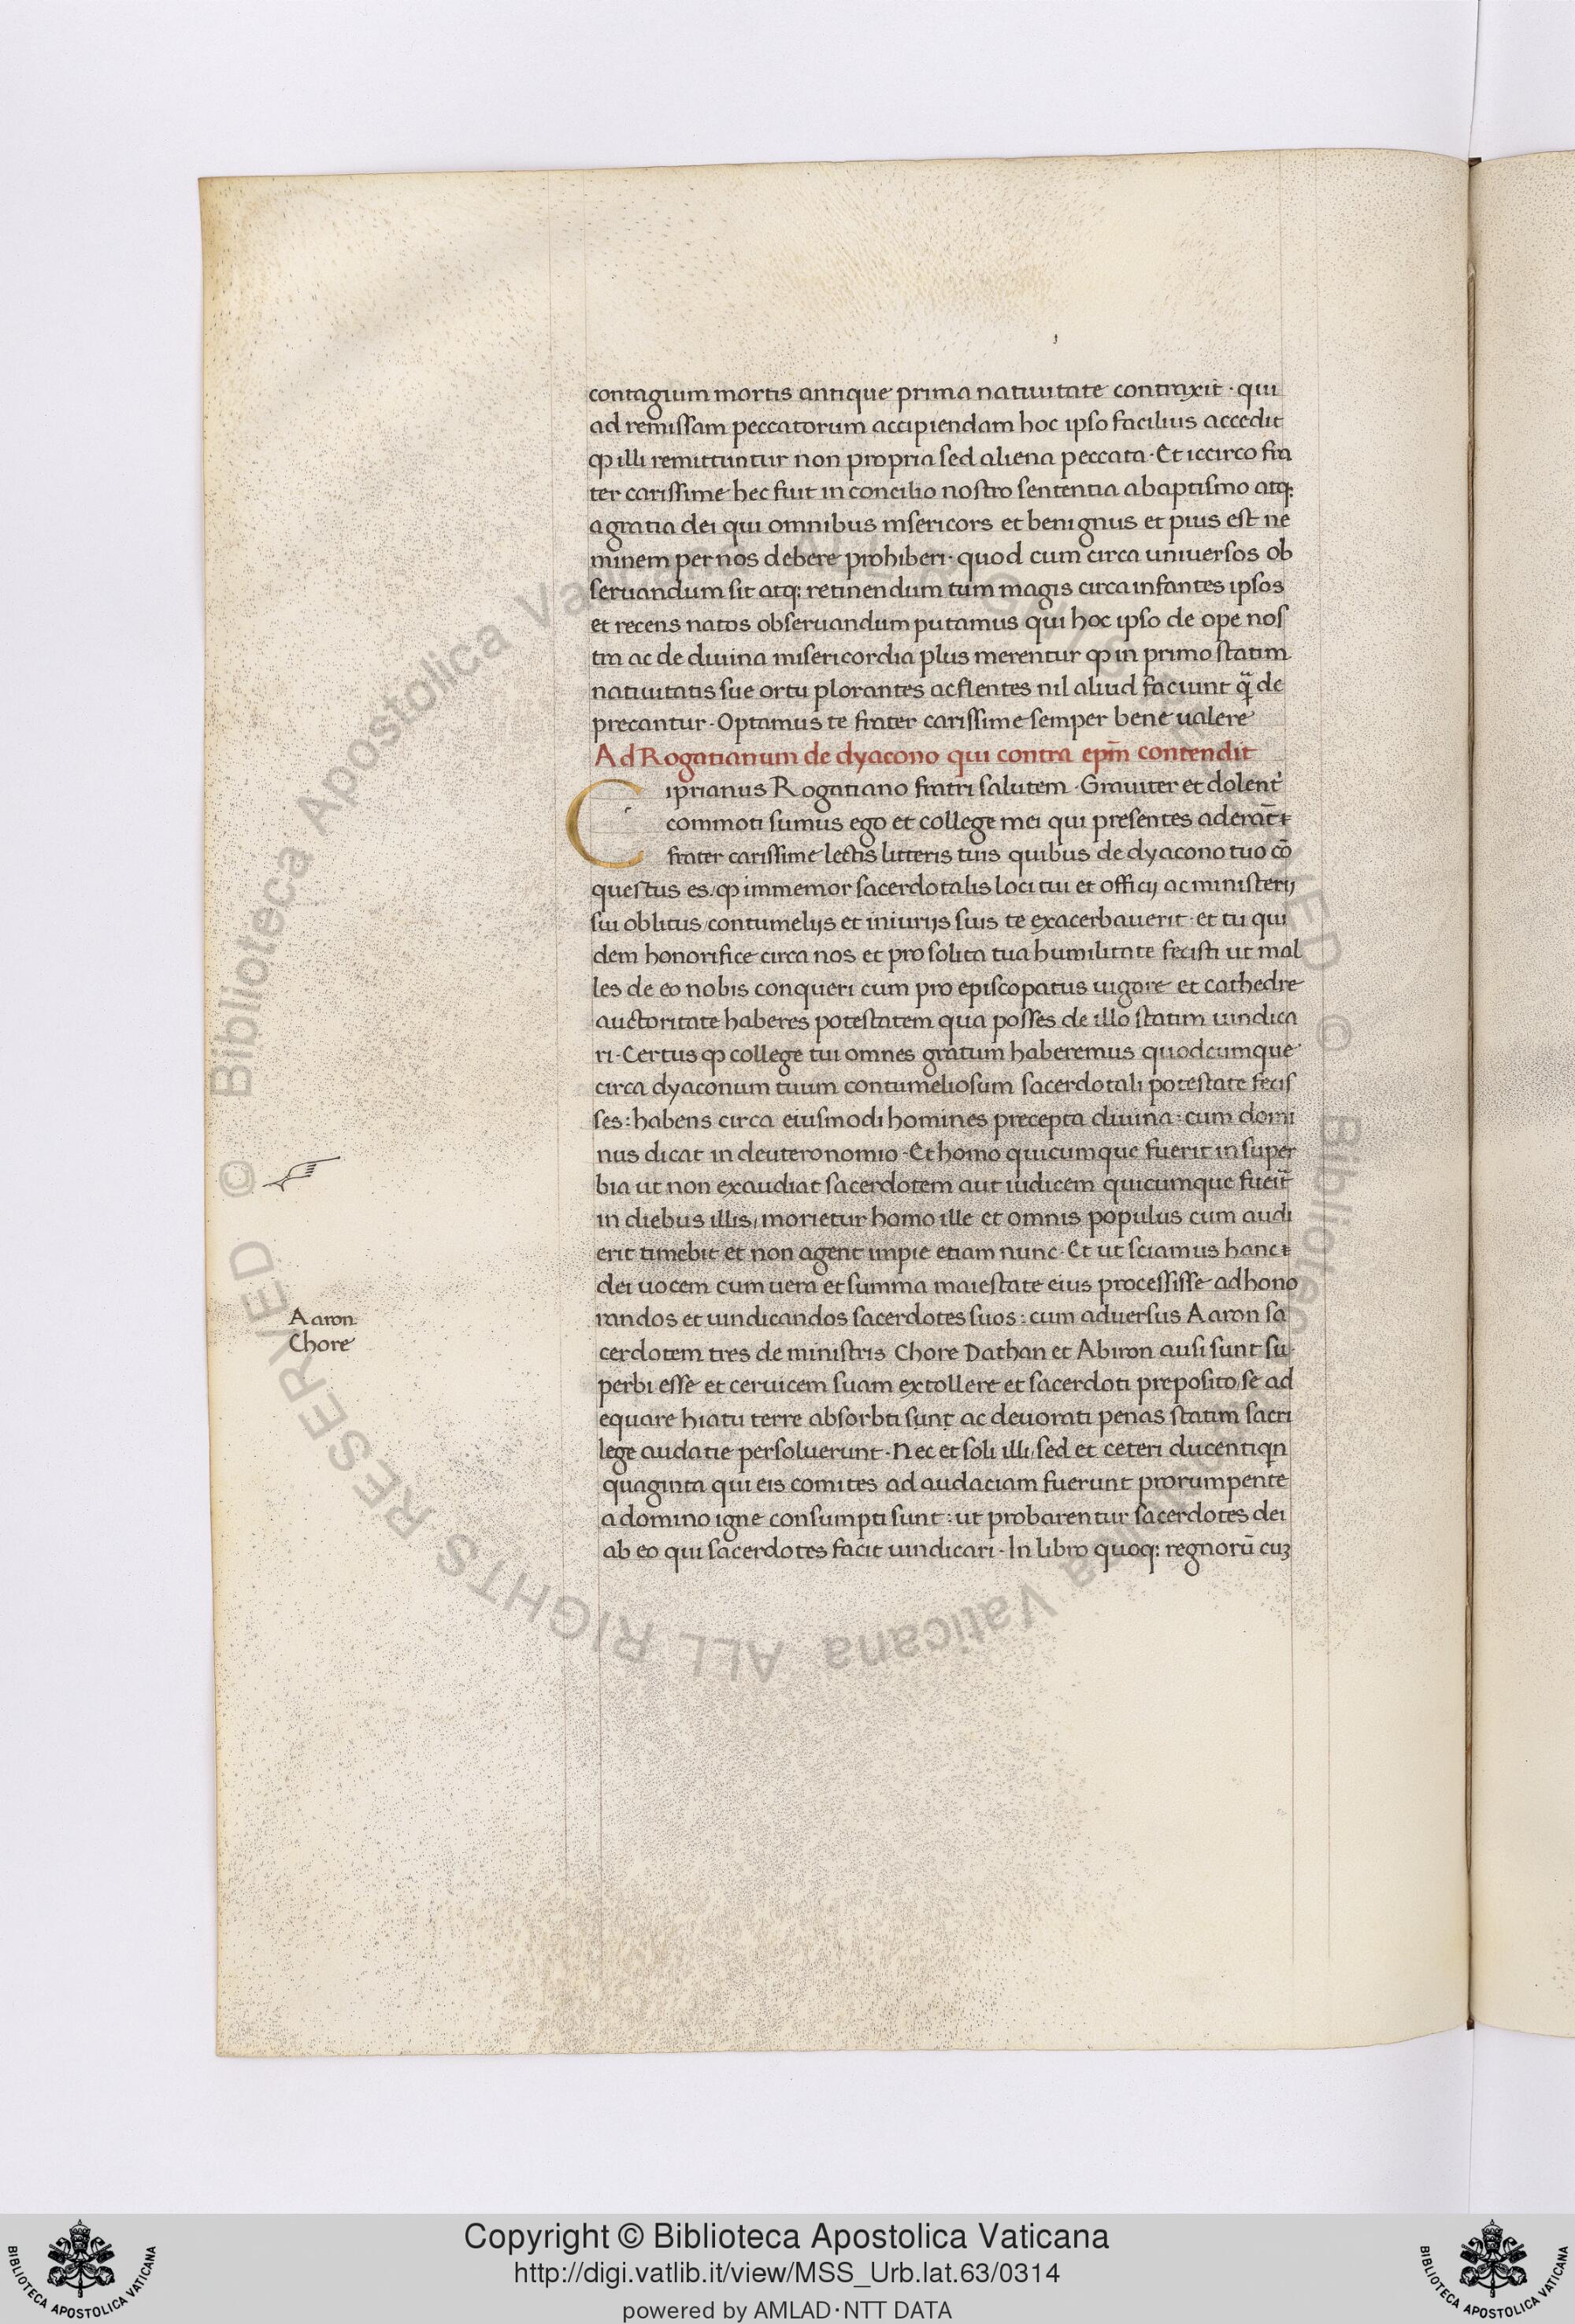 contagium mortis antique prima natiuitate contraxit · qui
ad remissam peccatorum accipiendam hoc ipso facilius accedit
ꝙ illi remittuntur non propria sed aliena peccata · Et iccirco fra
ter carissime hec fuit in concilio nostro sententia a baptismo atq;
a gratia dei qui omnibus msericors et benignus et pius est ne
minem per nos debere prohiberi · quod cum circa uniuersos ob
seruandum sit atq; retinendum tum magis circa infantes ipsos
et recens natos obseruandum putamus qui hoc ipso de ope nos
tra ac de diuina misericordia plus merentur ꝙ in primo statim
natiuitatis sue ortu plorantes ac flentes nil aliud faciunt q̄ de
precantur · Optamus te frater carissime semper bene ualere
Ad Rogatianum de dyacono qui contra ep̄m contendit
Ciprianus Rogatiano fratri salutem · Grauiter et dolent'
commoti sumus ego et college mei qui presentes aderāt
frater carissime lectis litteris tuis quibus de dyacono tuo cō
questus es / ꝙ immemor sacerdotalis loci tui et officij ac ministerij
sui oblitus / contumelijs et iniurijs suis te exacerbauerit · et tu qui
dem honorifice circa nos et pro solita tua humilitate fecisti ut mal
les de eo nobis conqueri cum pro episcopatus uigore et cathedre
auctoritate haberes potestatem qua posses de illo statim uindica
ri · Certus ꝙ college tui omnes gratum haberemus quodcumque
circa dyaconum tuum contumeliosum sacerdotali potestate fecis
ses : habens circa eiusmodi homines precepta diuina : cum domi
nus dicat in deuteronomio · Et homo quicumque fuerit in super
bia ut non exaudiat sacerdotem aut iudicem quicumque fueit̄
in diebus illis / morietur homo ille et omnis populus cum audi
erit timebit et non agent impie etiam nunc · Et ut sciamus hanc
dei uocem cum uera et summa maiestate eius processisse ad hono
randos et uindicandos sacerdotes suos : cum aduersus Aaron sa
Aaron
Chore
cerdotem tres de ministris Chore Dathan et Abiron ausi sunt su
perbi esse et ceruicem suam extollere et sacerdoti preposito se ad
equare hiatu terre absorbti sunt ac deuorati penas statim sacri
lege audatie persoluerunt · Nec et soli illi / sed et ceteri ducentiqn
quaginta qui eis comites ad audaciam fuerunt prorumpente
a domino igne consumpti sunt : ut probarentur sacerdotes dei
ab eo qui sacerdotes facit uindicari · In libro quoq; regnorū cuꝫ
© Biblioteca Apostolica Vaticana ALL RIGHTS RESERVED
© Biblioteca Apostolica Vaticana ALL RIGHTS RESERVED
BIBLIOTECA APOSTOLICA VATICANA
Copyright © Biblioteca Apostolica Vaticana
http://digi.vatlib.it/view/MSS_Urb.lat.63/0314
powered by AMLAD·NTT DATA
BIBLIOTECA APOSTOLICA VATICANA